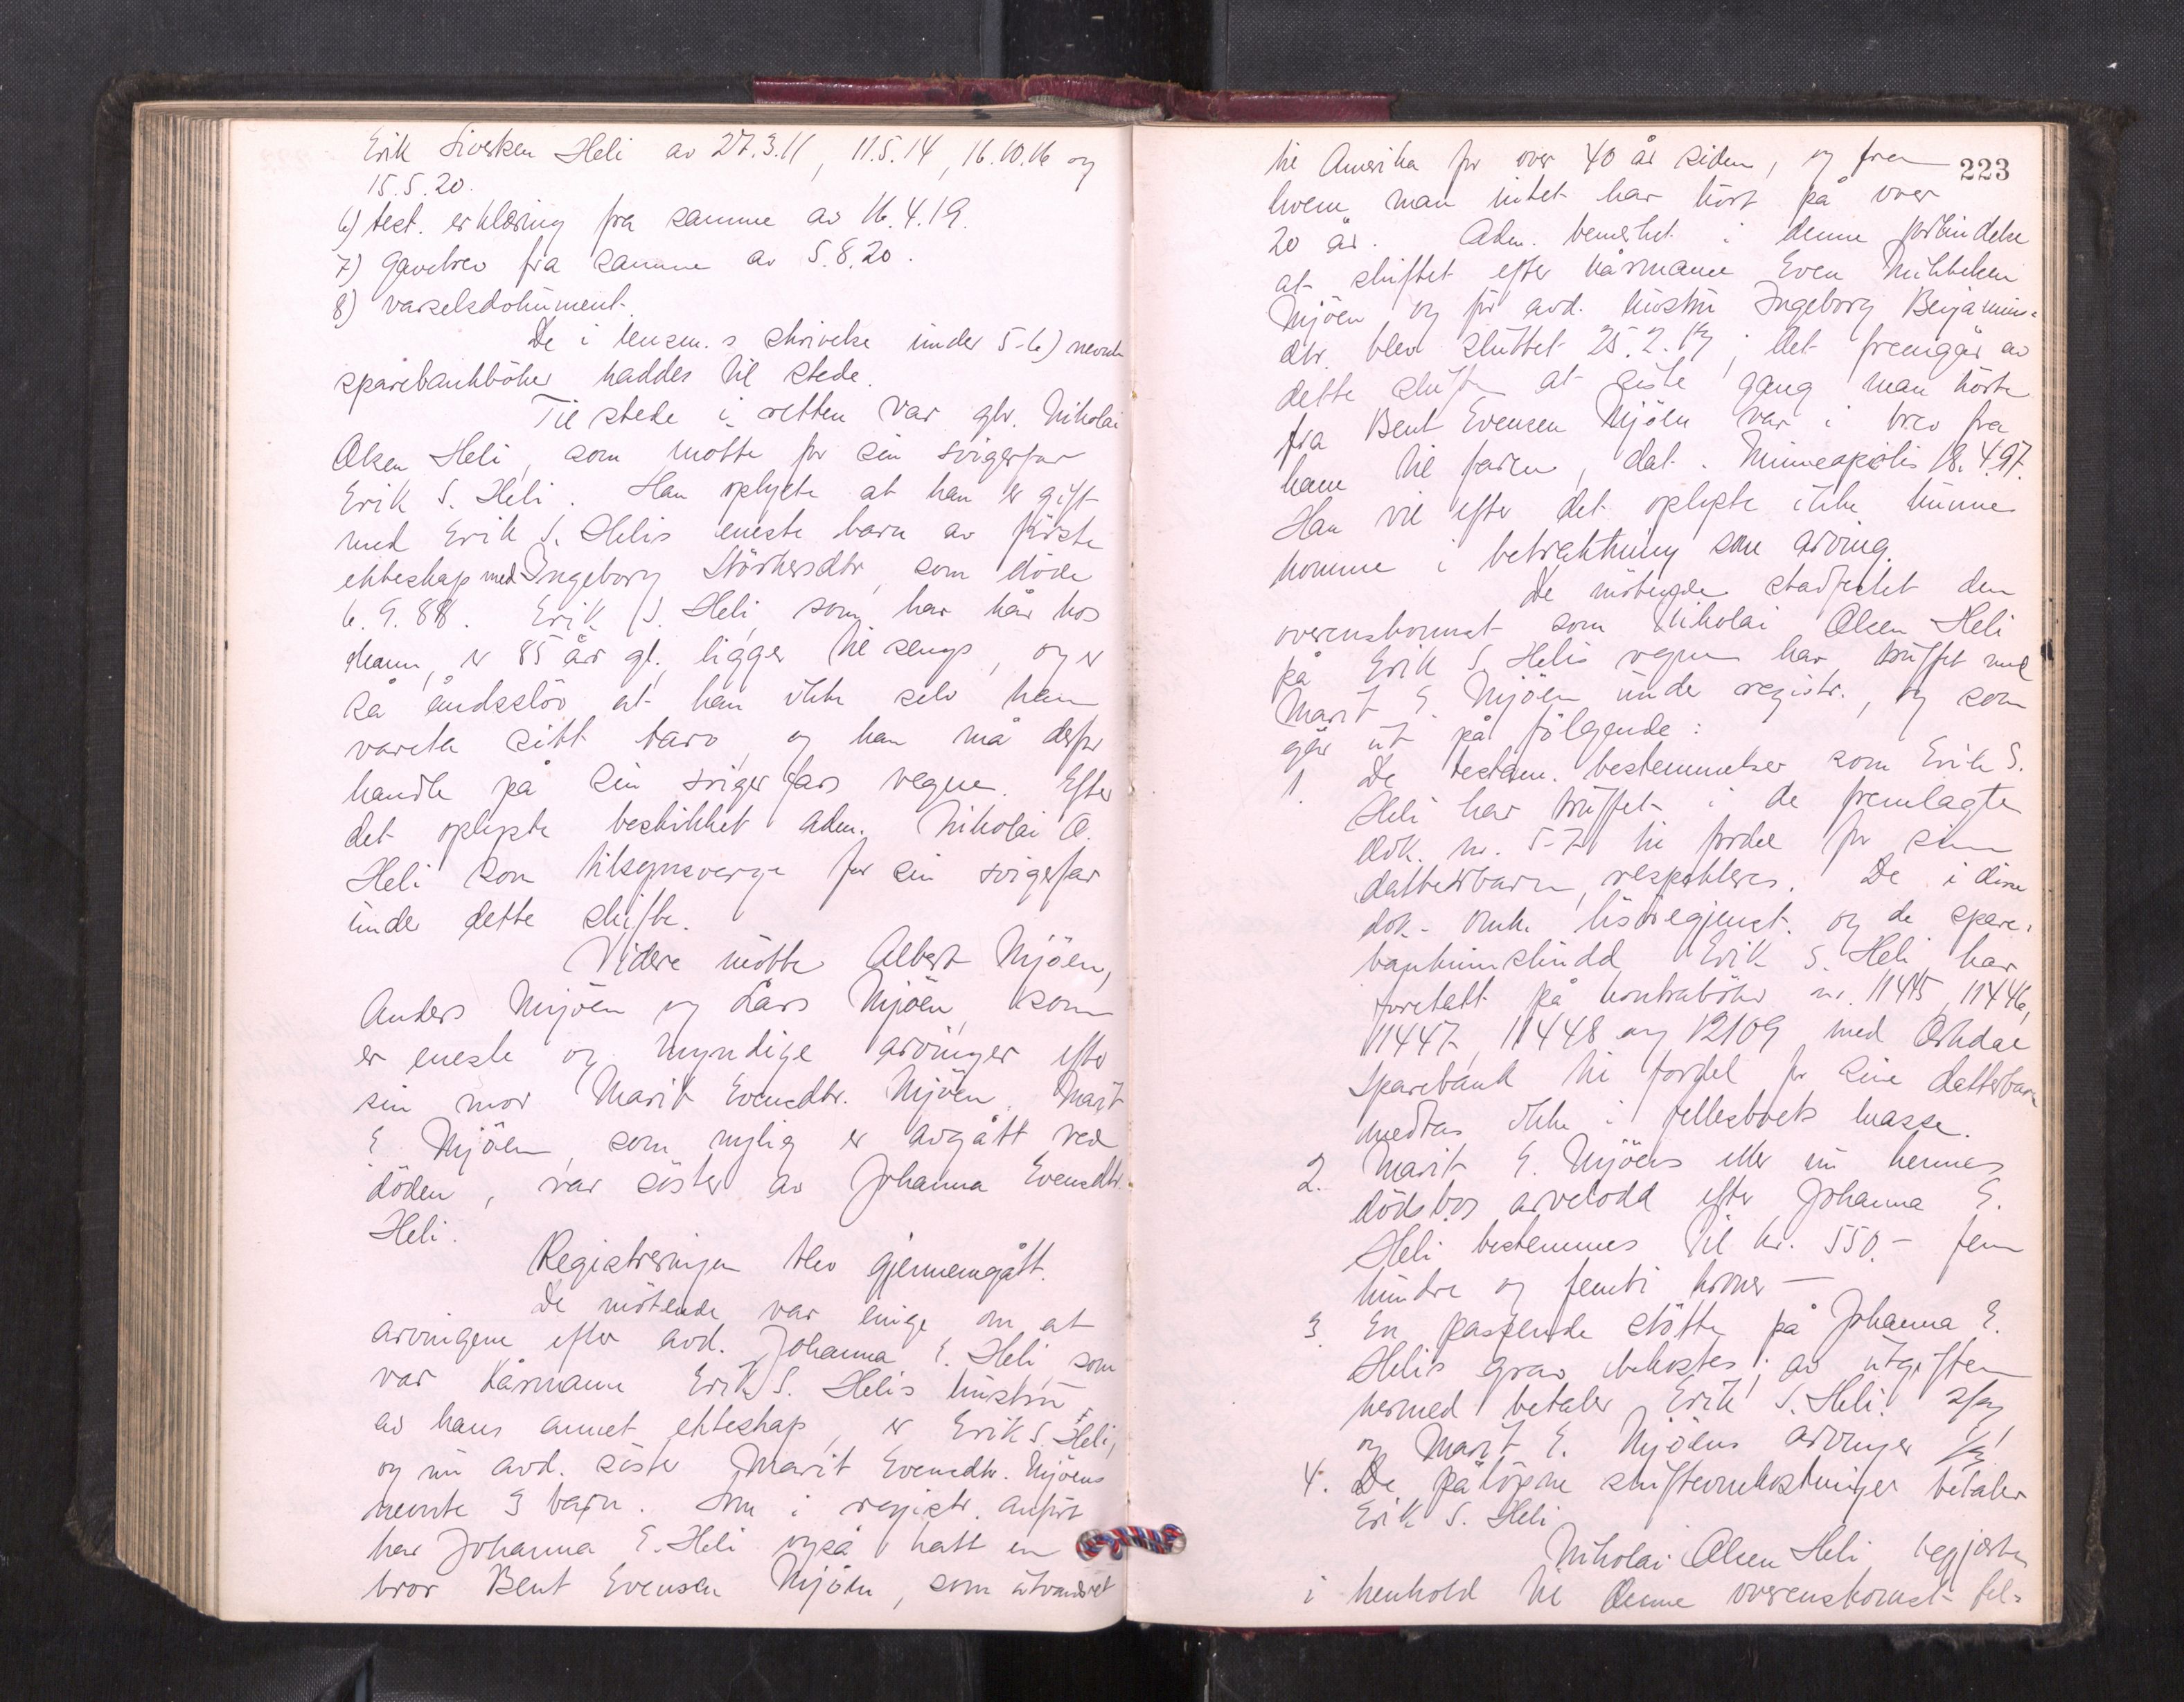 Erik Siversen Heli av 27.3.11, 11.5.14, 16.10.16 og
15.5.20.
6) test. erklæring fra samme av 16.4.19.
7) gavebrev fra samme av 5.8.20.
8) varselsdokument.
De i lensm.s skrivelse under 5-6) nevnte
sparebankbøker haddes til stede.
Til stede i retten var gbr. Nikolai
Olsen Heli, som møtte for sin svigerfar
Erik S. Heli. Han oplyste at han er gift
med Erik S. Helis eneste barn av første
ekteskap med Ingeborg Størkersdtr, som døde
6.9.88. Erik S. Heli, som har kår hos
ham, er 85 år gl. ligger til sengs, og er
så åndssløv at han ikke selv kan
vareta sitt tarv, og han må derfor
handle på sin svigerfars vegne. Efter
det oplyste beskikket adm. Nikolai O.
Heli som tilsynsverge for sin svigerfar
under dette skifte.
Videre møtte Albert Mjøen,
Anders Mjøen og Lars Mjøen, som
er eneste og myndige arvinger efter
sin mor Marit Evensdtr. Mjøen. Marit
E. Mjøen, som nylig er avgått ved
døden, var søster av Johanna Evensdtr.
Heli.
Registreringen blev gjennemgått.
De møtende var enige om at
arvingene efter avd. Johanna E. Heli, som
var kårmann Erik S. Helis hustru
av hans annet ekteskap, er Erik S. Heli,
og nu avd. søster Marit Evensdtr. Mjøens
nevnte 3 barn. Som i registr. anført
har Johanna E. Heli også hatt en
bror Bent Evensen Mjøen, som utvandret
223
til Amerika for over 40 år siden, og fra
hvem man intet har hørt på over
20 år. Adm. bemerket i denne forbindelse
at skiftet efter kårmann Even
Mjøen og før avd. hustru Ingeborg Benjamins-
dtr. blev sluttet 25.2.; det fremgår av
dette skifte at siste gang man hørte
fra Bent Evensen Mjøen var i brev fra
ham til faren, dat. Minneapolis 18.4.97.
Han vil efter det oplyste ikke kunne
komme i betraktning som arving.
De møtende stadfestet den
overenskomst som Nikolai Olsen Heli
på Erik S. Helis vegne har truffet med
Marit E. Mjøen under registr., og som
går ut på følgende:
1. De testam. bestemmelser som Erik S.
Heli har truffet i de fremlagte
dok. nr. 5-7 til fordel for sine
datterbarn, respekteres. De i disse
dok. omh. løsøregjenst. og de spare-
bankinnskudd Erik S. Heli har
foretatt på kontrabøker nr. 11445, 11446,
11447, 11448 og 12109 med Orkdal
Sparebank til fordel for sine datterbarn
medtas ikke i fellesboets masse.
2. Marit E. Mjøens eller nu hennes
dødsbos arvelodd efter Johanna E.
Heli bestemmes til kr. 550.- fem
hundre og femti kroner —
3. En passende støtte på Johanna E.
Helis grav bekostes; av utgiften
hermed betaler Erik S. Heli 2/3
og Marit E. Mjøens arvinger 1/3.
4. De påløpne skifteomkostninger betaler
Erik S. Heli
Nikolai Olsen Heli begjærte
i henhold til denne overenskomst fel-